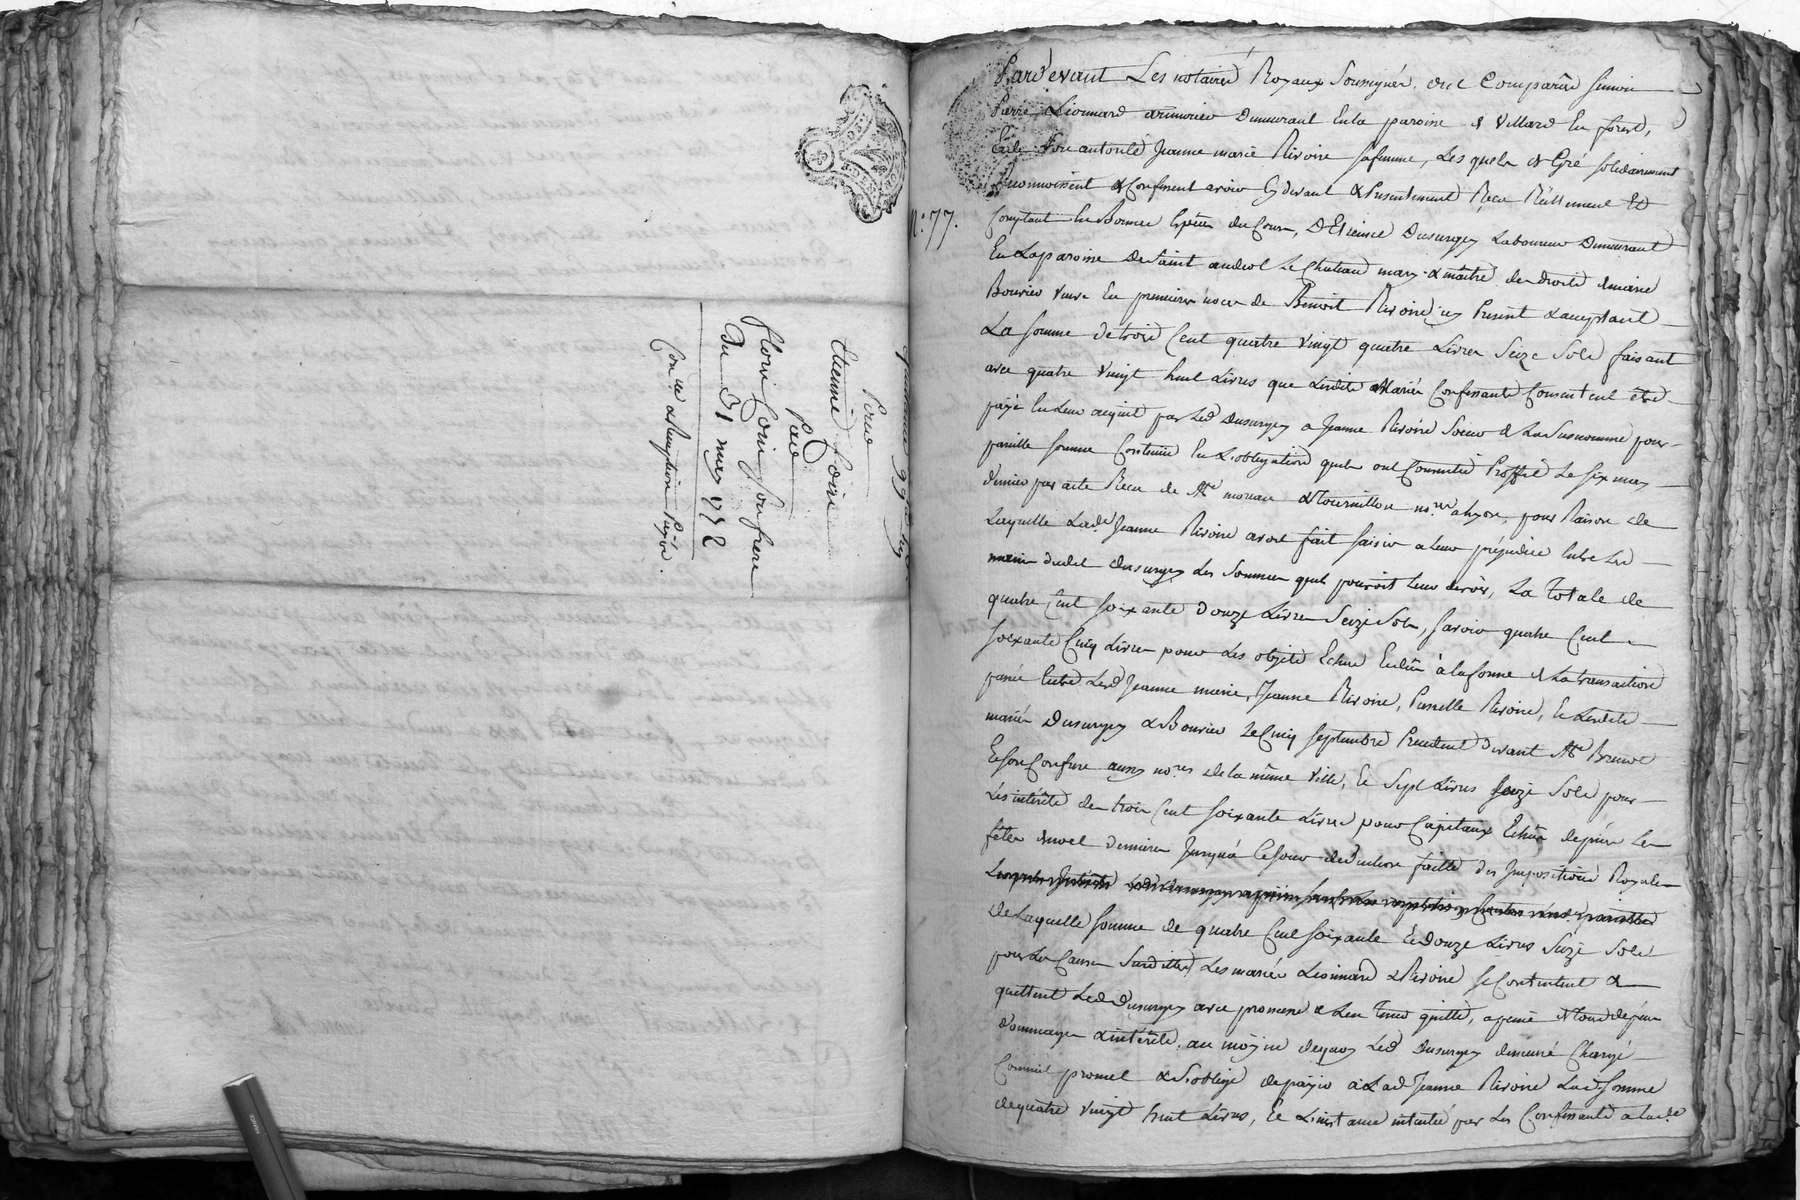 quittance 99
Pour
Etienne Coire
Par
florin Coire son frere
Du 31 may 1752
Con.lée & Reception Payée.
N.° 77.
Pardevant Les notaires Royaux Soussignés, ont Comparûs Simon
Pierre Lionnard armurier Demeurant En la paroisse de Villard En forest,
Et de Son autorité Jeanne marie Rivoire sa femme, Lesquels de Gré solidairement
Reconnoissent & Confessent avoir Cy devant & Presentement Recu Réellement Et
Comptant En Bonnes Espèces du Cours, D'Etienne Dusurgey Laboureur Demeurant
En La paroisse de Saint andeol Le Chateau mary & maitre des droits de marie
Bouvier Veuve En premieres noces de Benoit Rivoire icy Present & acceptant
La somme de trois Cent quatre vingt quatre Livres Seize Sols faisant
avec quatre vingt huit Livres que Lesdits Mariés Confessants Consentent être
payé En Leur acquit par Led. Dusurgey a Jeanne Rivoire Soeur de La Susnommée pour
pareille somme Contenüe En L'obligation quils ont Consentie a Proffit Le six may
dernier par acte Recu de Me moreau & Tournillon no.res a Lyon, pour Raison de
Laquelle Lad.e Jeanne Rivoire avoit fait saisir a Leur préjudice Entre Les
mains dudit Dusurgey Les Sommes quil pouvoit Leur devoir, La totale de
quatre Cent soixante Douze Livres Seize Sols, savoir quatre Cent
soixante Cinq Livres pour Les objets Echus Enclin à la forme de La transaction
passée Entre Lesd. Jeanne marie, Jeanne Rivoire, Pierrette Rivoire, Et Lesdits
mariés Dusurgey & Bouvier Le Cinq Septembre Precedent devant Me Brenot
Et son Confrere aussy no.res de la même Ville, Et Sept Livres Seize Sols pour
Les intérêts de trois Cent soixante Livres pour Capitaux Echus depuis Les
fêtes de noel dernieres Jusqua Ce jour déduction faitte des Impositions Royales
De Laquelle somme de quatre Cent soixante Et Douze Livres Seize Sols
pour Les Causes Susdittes Les mariés Lionnard & Rivoire se Contentent &
quittent Led. Dusurgey avec promesse de L'en tenir quitte, a peine de tous depens
Dommages & intérêts, au moÿen de quoy Led. Dusurgey demeure Chargé
Comme promet & S'oblige de payer a Lad. Jeanne Rivoire Lad. Somme
de quatre vingt huit Livres, Et L'instance intentée par Les Confessants a Lad.e